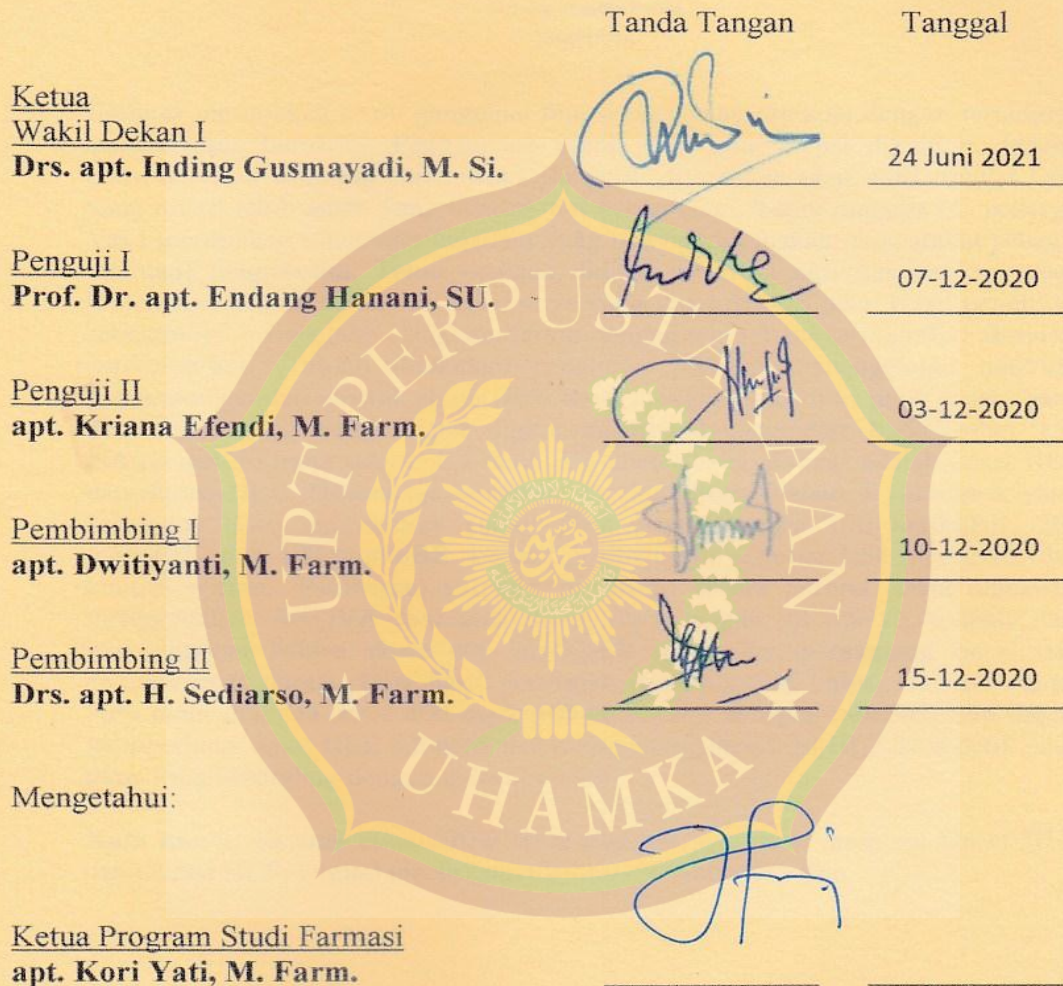 Tanda Tangan Tanggal
Ketua
Wakil Dekan I
Drs. apt. Inding Gusmayadi, M. Si.
24 Juni 2021
Penguji I
Prof. Dr. apt. Endang Hanani, SU.
07-12-2020
Penguji II
apt. Kriana Efendi, M. Farm.
03-12-2020
Pembimbing I
apt. Dwitiyanti, M. Farm.
10-12-2020
Pembimbing II
Drs. apt. H. Sediarso, M. Farm.
15-12-2020
Mengetahui:
Ketua Program Studi Farmasi
apt. Kori Yati, M. Farm.
UPT PERPUSTAKAAN
UHAMKA